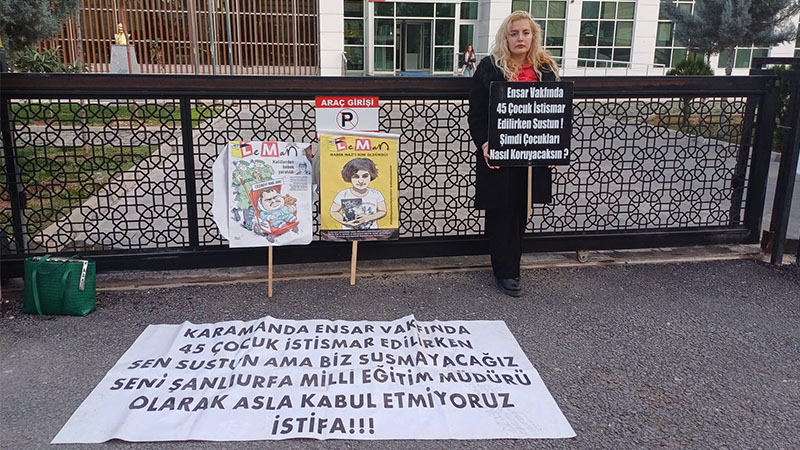 ARAÇ GİRİŞİ
P
LeMan
LeMan
RABİA NAZ'I KİM ÖLDÜRDÜ?
Ensar Vakfında
45 Çocuk İstismar
Edilirken Sustun !
Şimdi Çocukları
Nasıl Koruyacaksın ?
KARAMANDA ENSAR VAKFINDA
45 ÇOCUK İSTİSMAR EDİLİRKEN
SEN SUSTUN AMA BİZ SUSMAYACAĞIZ
SENİ ŞANLIURFA MİLLİ EĞİTİM MÜDÜRÜ
OLARAK ASLA KABUL ETMİYORUZ
İSTİFA!!!